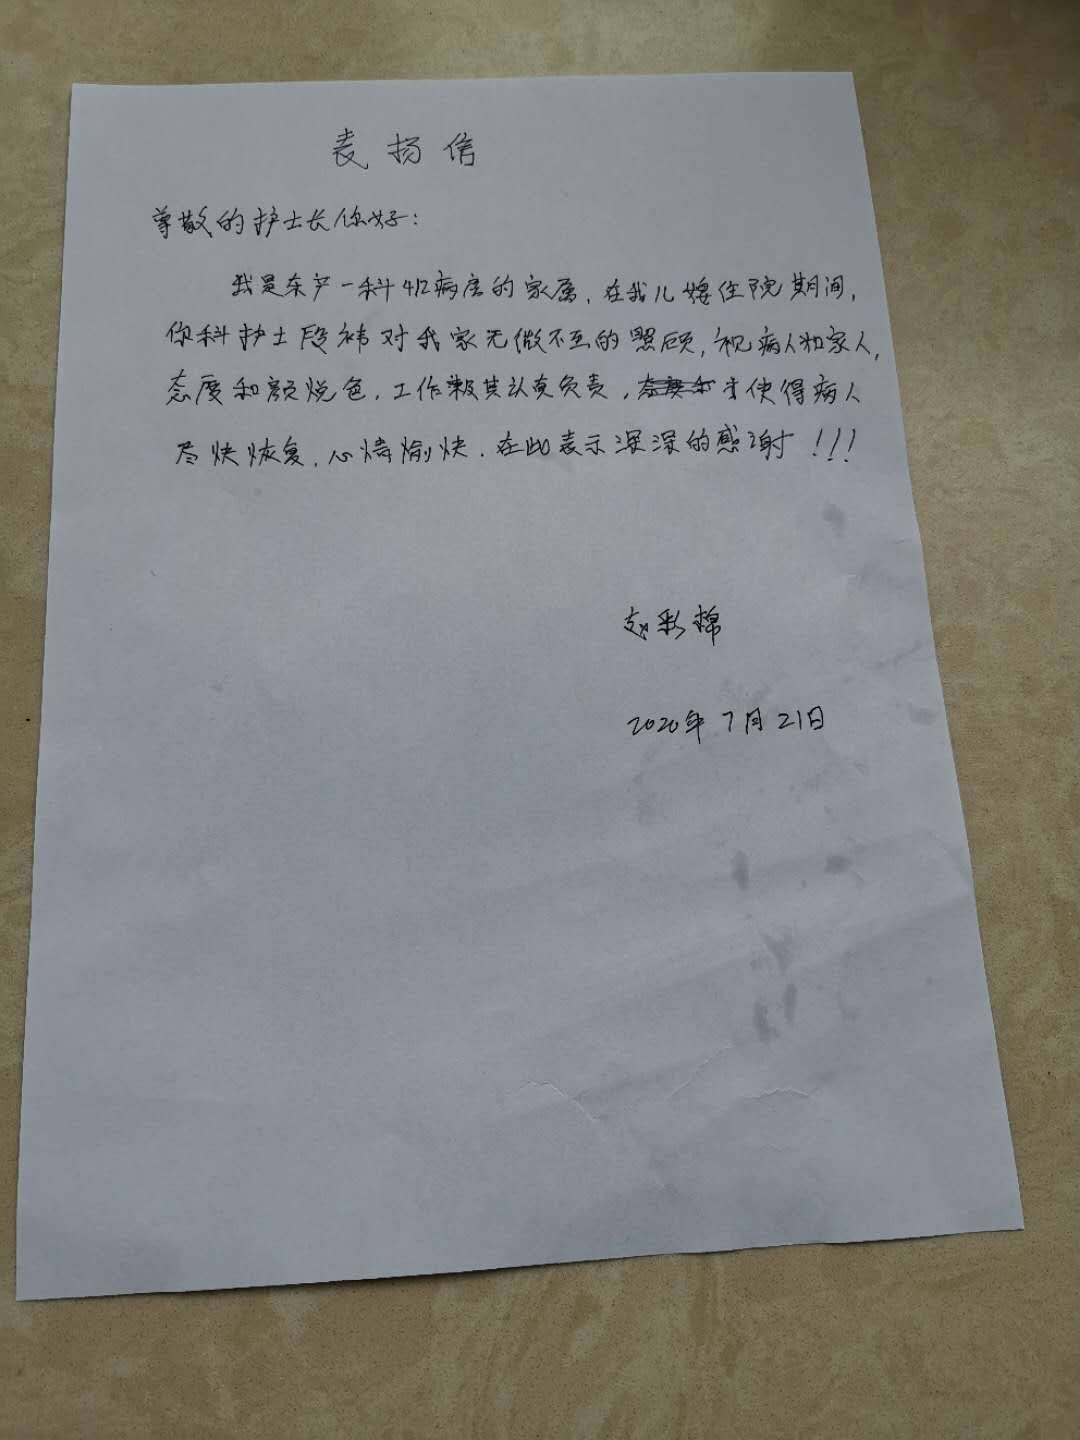 表扬信
尊敬的护士长你好:
我是东产一科412病房的家属,在我儿媳住院期间,
你科护士段祎对我家无微不至的照顾,视病人如家人,
态度和颜悦色,工作极其认真负责,才使得病人
尽快恢复,心情愉快.在此表示深深的感谢!!!
赵彩棉
2020年7月21日